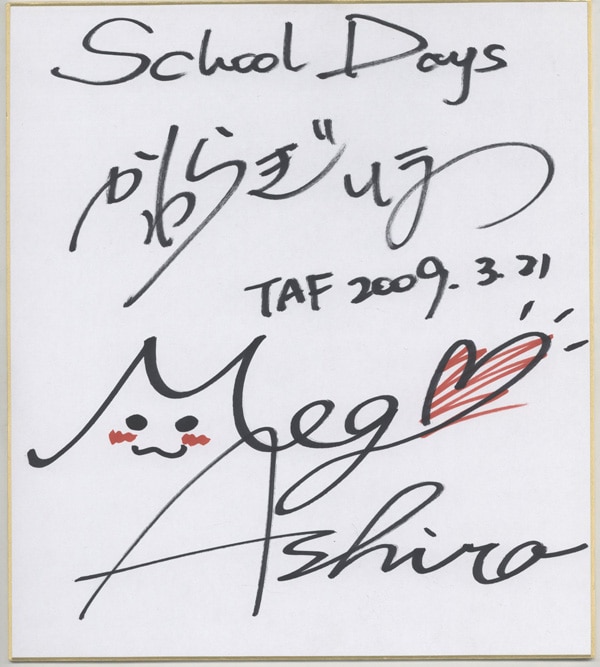 School Days
かわらぎ
TAF 2009.3.21
Meg
Ashiro